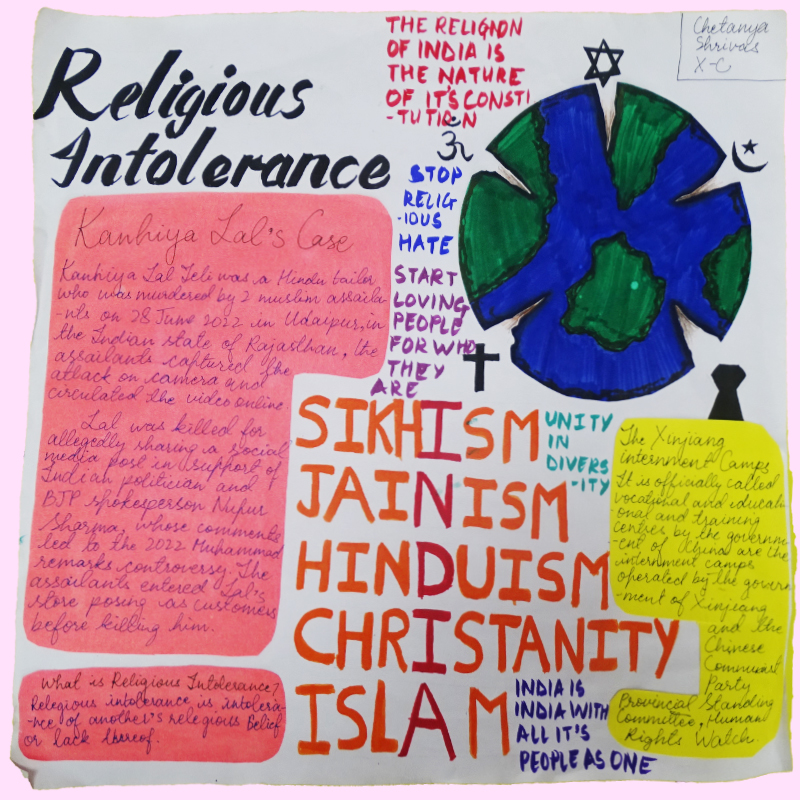 Religious
Intolerance
THE RELIGION
OF INDIA IS
THE NATURE
OF IT'S CONSTI
-TUTION
Chetanya
Shrivas
X-C
ॐ
STOP
RELIG
-IOUS
HATE
START
LOVING
PEOPLE
FOR WHO
THEY
ARE
Kanhiya Lal's Case
Kanhiya Lal Teli was a Hindu tailor
who was murdered by 2 muslim assaila
-nts on 28 June 2022 in Udaipur, in
the Indian state of Rajasthan, the
assailants captured the
attack on camera and
circulated the video online.
Lal was killed for
allegedly sharing a social
media post in support of
Indian politician and
BJP spokesperson Nupur
Sharma, whose comments
led to the 2022 Muhammad
remarks controversy. The
assailants entered Lal's
store posing as customers
before killing him.
What is Religious Intolerance?
Religious intolerance is intolera-
-nce of another's religious belief
or lack thereof.
SIKHISM
JAINISM
HINDUISM
CHRISTANITY
ISLAM
UNITY
IN
DIVERS
-ITY
INDIA IS
INDIA WITH
ALL IT'S
PEOPLE AS ONE
The Xinjiang
internment Camps
It is officially called
vocational and educati
onal and training
centres by the governm-
-ent of China are the
internment camps
operated by the govern
-ment of Xinjiang
and the
Chinese
Communist
Party
Provincial Standing
Committee, Human
Rights Watch.